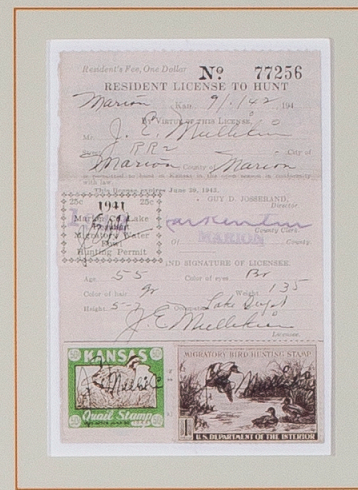 Resident's Fee, One Dollar No. 77256
RESIDENT LICENSE TO HUNT
Marion, Kan., 9/1 42 194
BY VIRTUE OF THIS LICENSE,
Mr. J. E. Mullikin
RR2 City of
Marion County of Marion
is permitted to hunt in Kansas in the open season in conformity
with law.
This license expires June 30, 1943.
GUY D. JOSSERAND,
Director.
County Clerk
Of MARION County.
25c 1941 25c
Marion Co. Lake
Migratory Water
Fowl
Hunting Permit
AND SIGNATURE OF LICENSEE
Age 55 Color of eyes Br
Color of hair gr Weight 135
Height 5-7 Occupation Lake Supt
J. E. Mullikin
Licensee.
KANSAS
Quail Stamp
MIGRATORY BIRD HUNTING STAMP
$1
U.S. DEPARTMENT OF THE INTERIOR